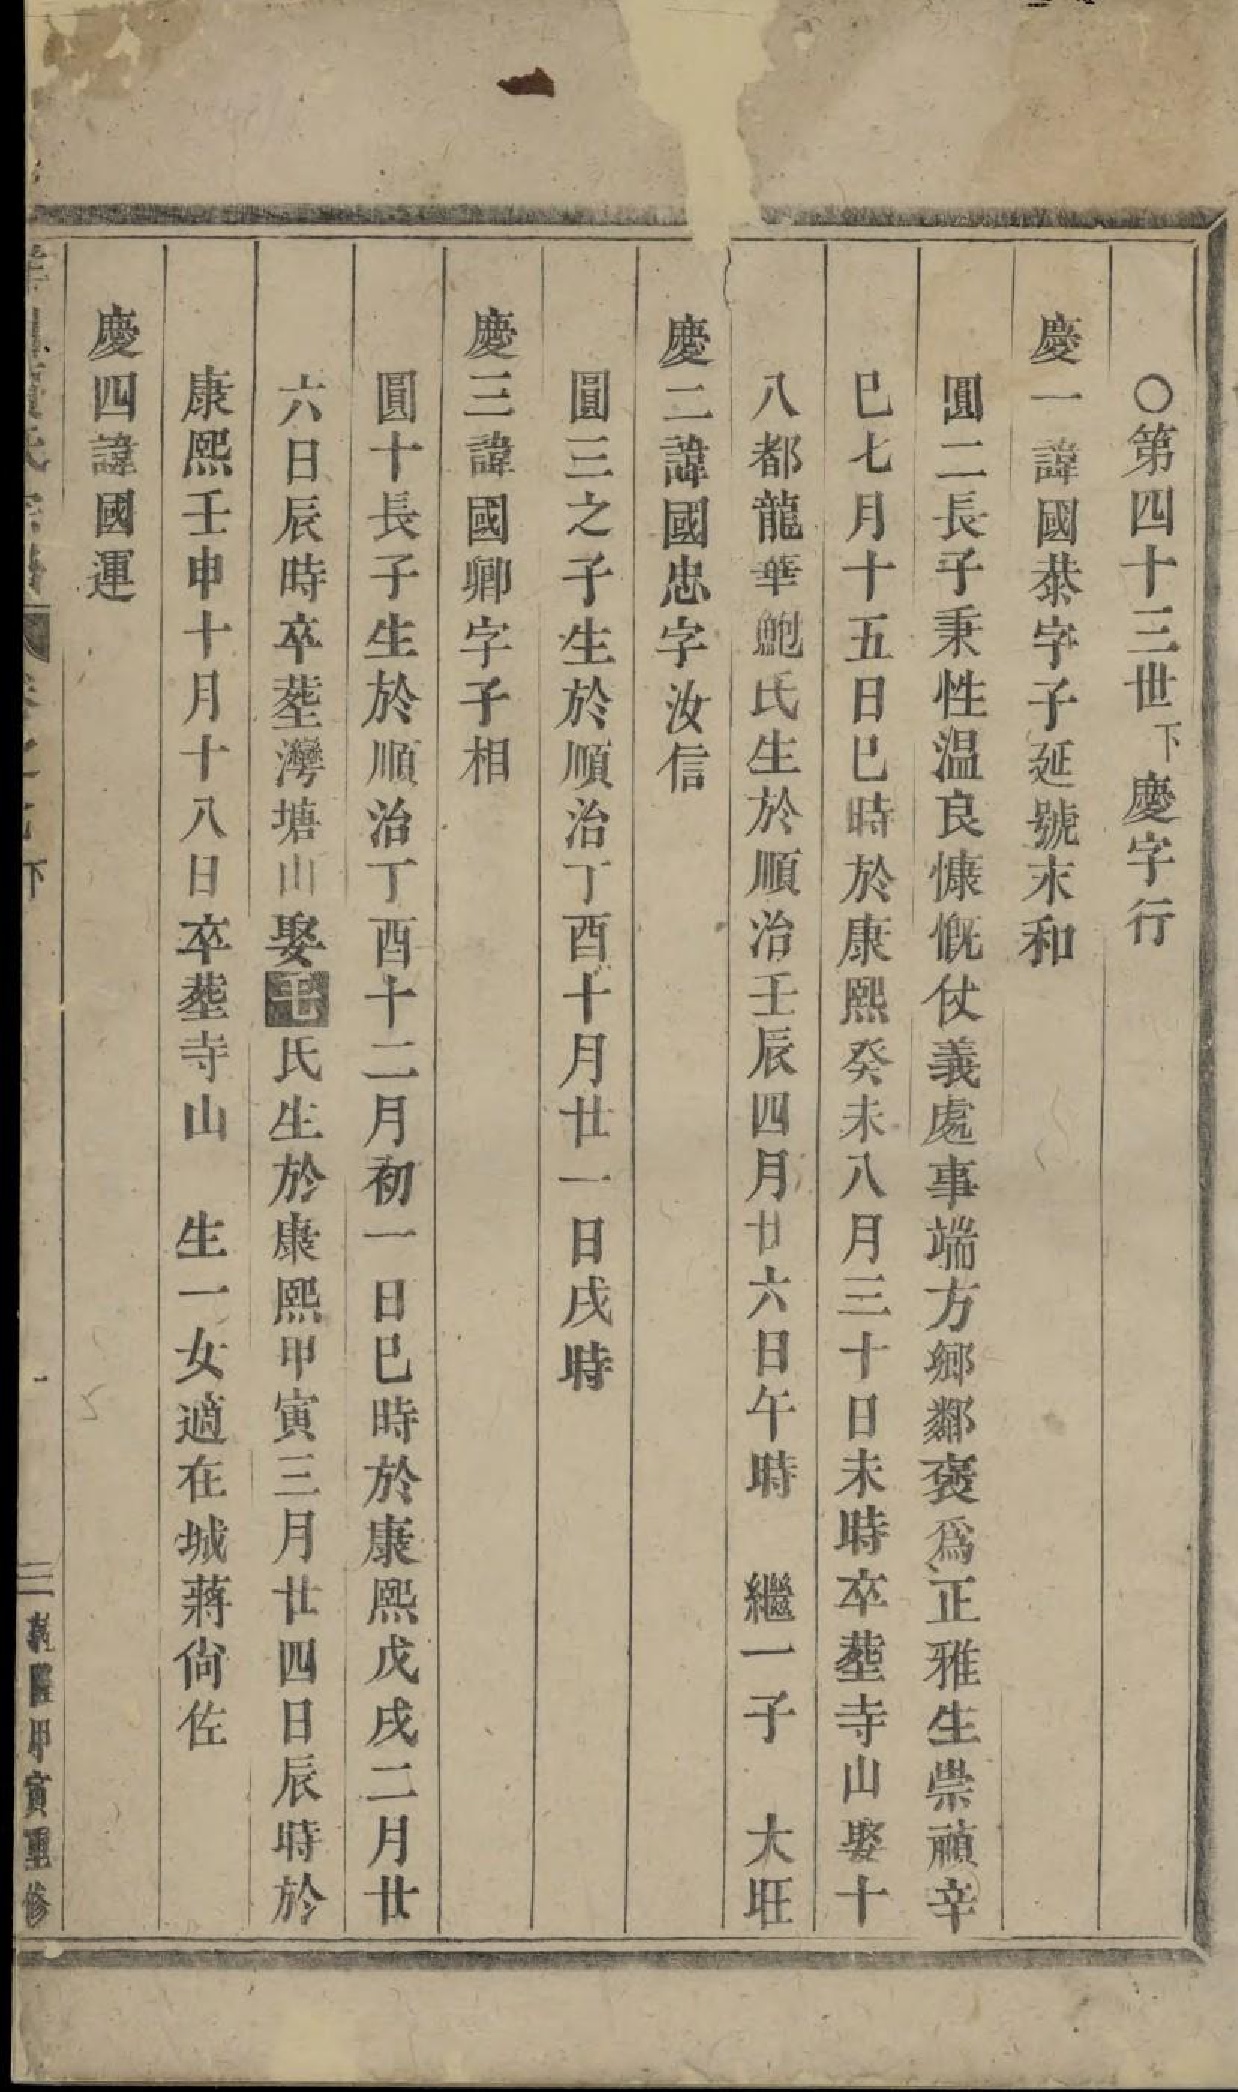 ○第四十三世下慶字行
慶一諱國恭字子延號末和
圓二長子秉性温良慷慨仗義處事端方鄉鄰褒為正雅生崇禎辛
巳七月十五日巳時於康熙癸未八月三十日未時卒塟寺山娶十
八都龍華鮑氏生於順治壬辰四月廿六日午時　繼一子　大旺
慶二諱國忠字汝信
圓三之子生於順治丁酉十月廿一日戌時
慶三諱國卿字子相
圓十長子生於順治丁酉十二月初一日巳時於康熙戊戌二月廿
六日辰時卒塟灣塘山娶氏生於康熙甲寅三月廿四日辰時於
康熙壬申十月十八日卒塟寺山　生一女適在城蔣尙佐
慶四諱國運
氏宗譜
卷之
三
乾隆甲寅重修